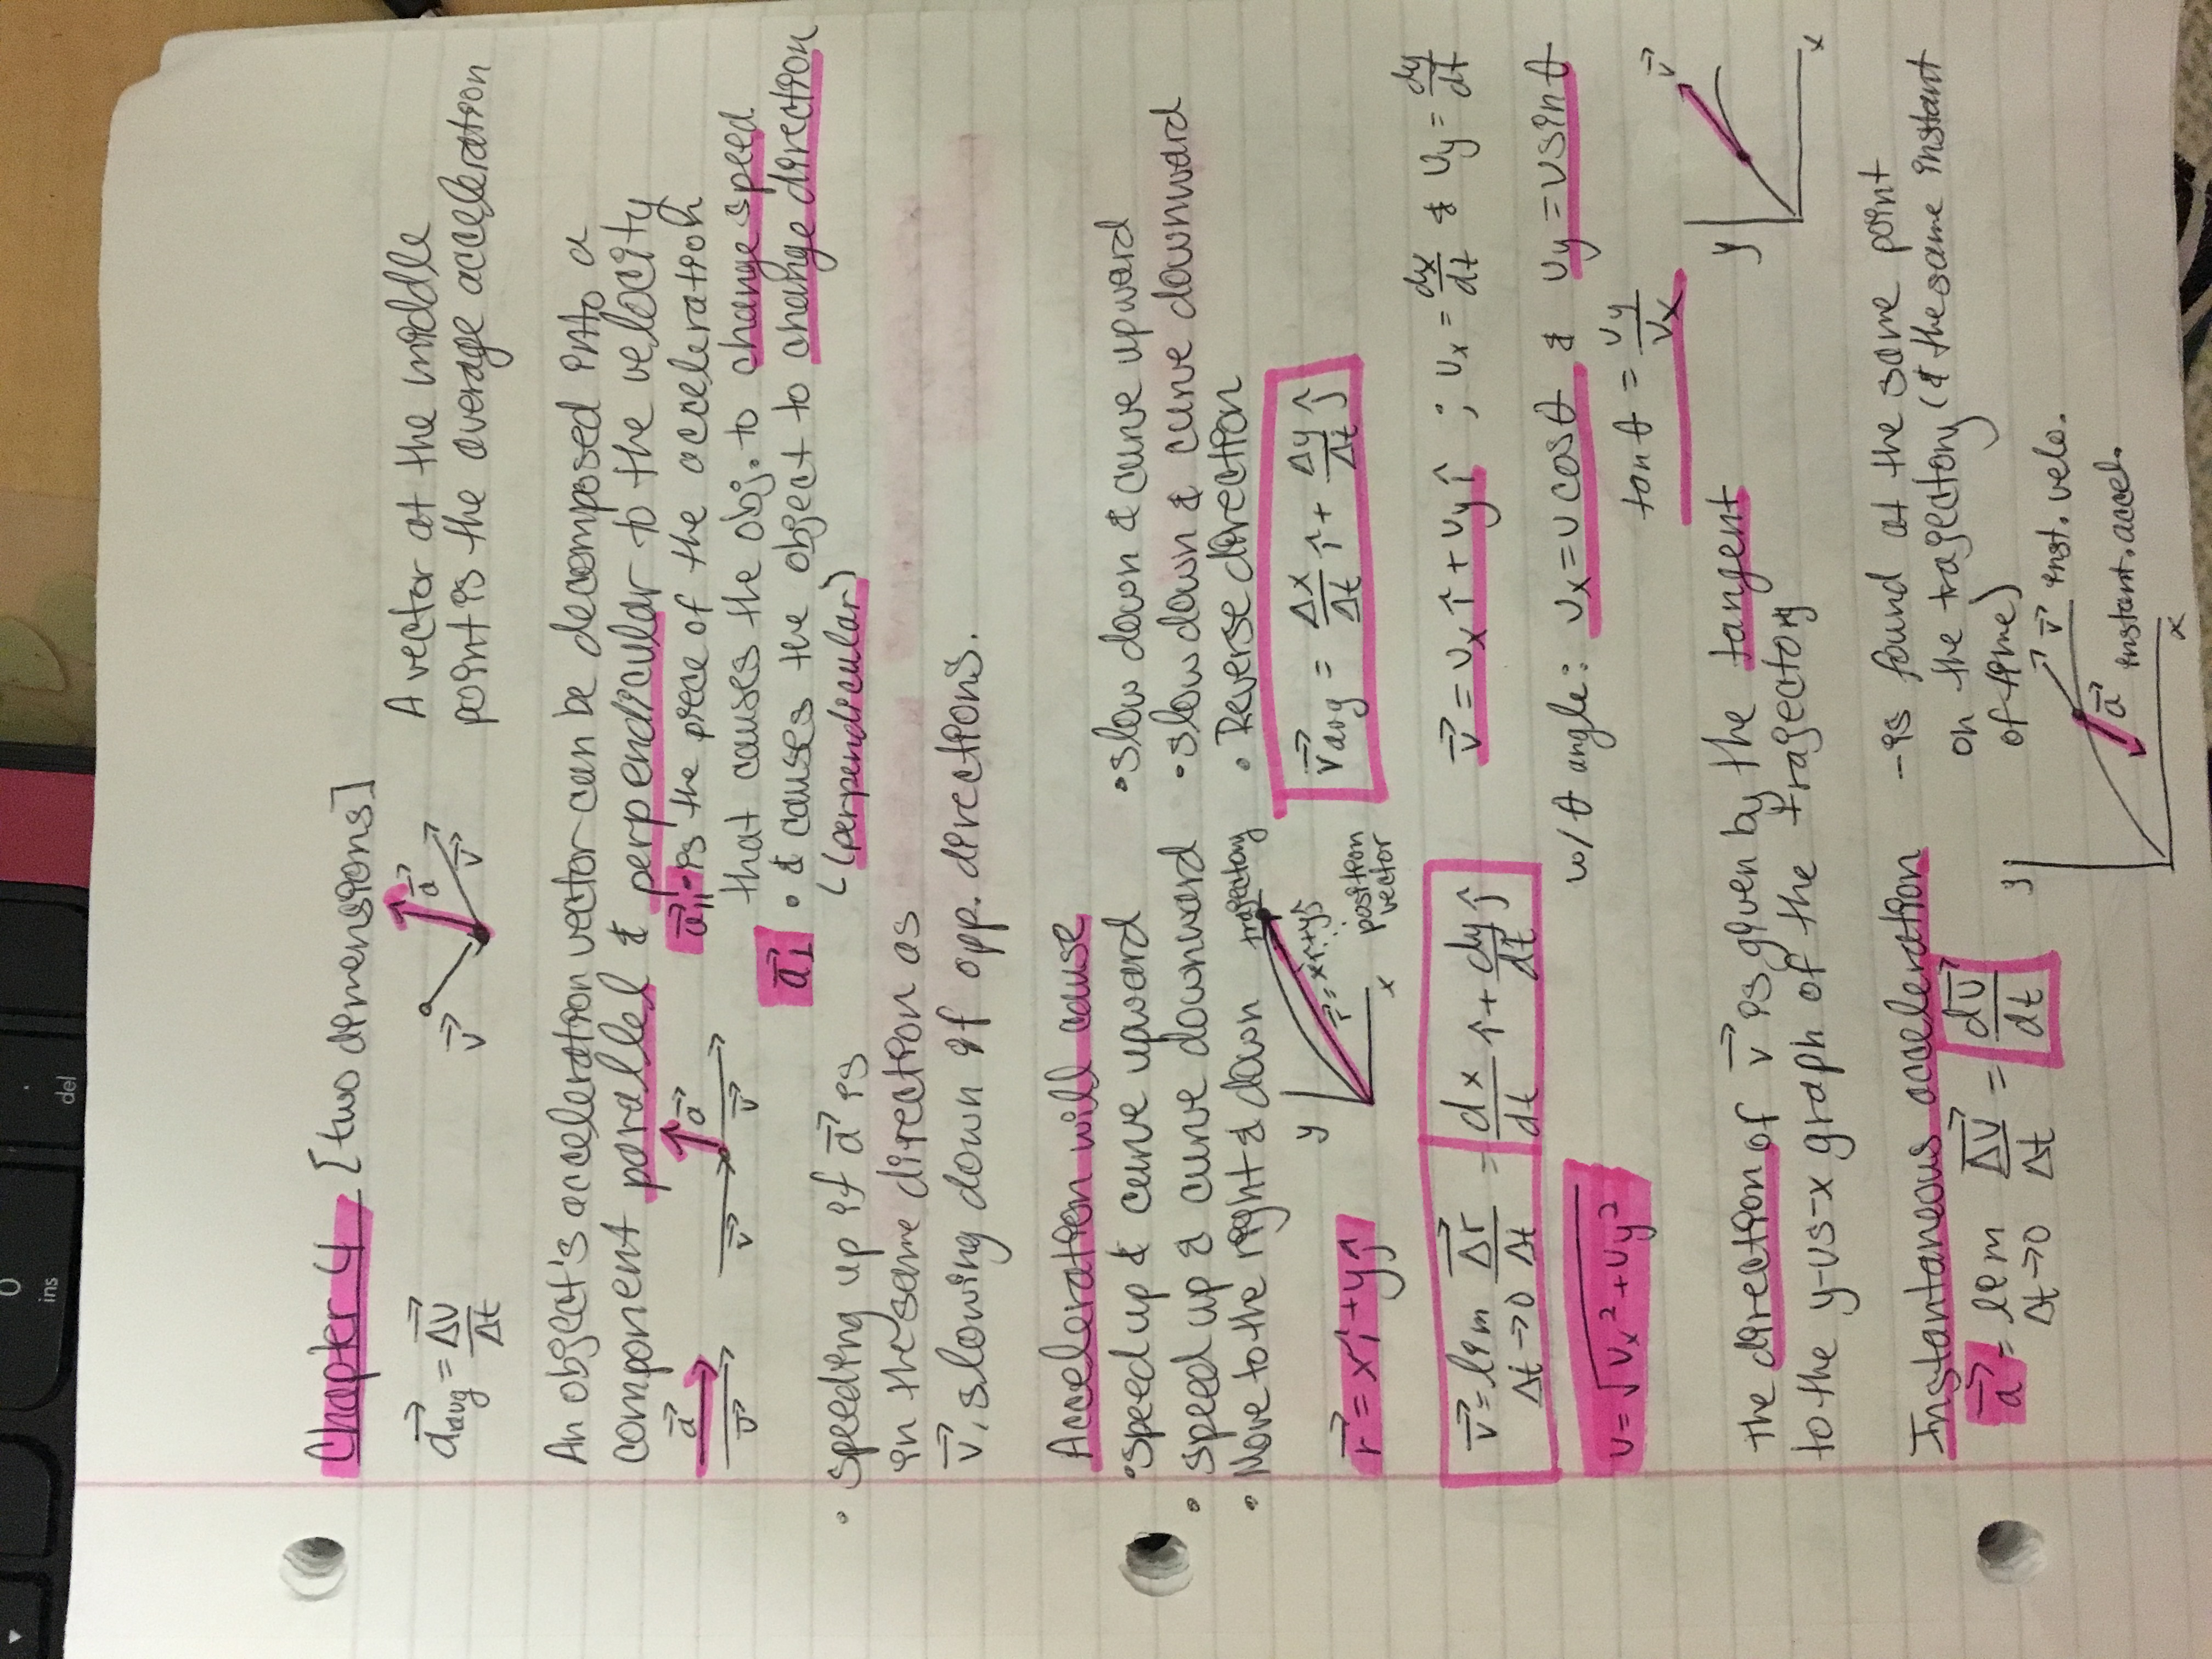 Chapter 4 [two dimensions]
a⃗avg = Δv⃗/Δt
v⃗ a⃗ v⃗
A vector at the middle
point is the average acceleration
An object's acceleration vector can be decomposed into a
component parallel & perpendicular to the velocity
a⃗ v⃗
v⃗ a⃗ v⃗
a⃗|| - is the piece of the acceleration
that causes the obj. to change speed
a⃗⊥ • & causes the object to change direction
(perpendicular)
• speeding up if a⃗ is
in the same direction as
v⃗, slowing down if opp. directions.
Acceleration will cause
• speed up & curve upward • slow down & curve upward
• speed up & curve downward • slow down & curve downward
• Move to the right & down • Reverse direction
y x r⃗ = xî+yĵ trajectory
position
vector
r⃗ = xî + yĵ
v⃗avg = Δx/Δt î + Δy/Δt ĵ
v⃗ = lim Δt→0 Δr⃗/Δt = dx/dt î + dy/dt ĵ
v⃗ = vx î + vy ĵ ; vx = dx/dt & vy = dy/dt
v = √vx² + vy²
w/ θ angle: vx = v cosθ & vy = v sinθ
tanθ = vy/vx
the direction of v⃗ is given by the tangent
to the y-vs-x graph of the trajectory
y v⃗ x
Instantaneous acceleration - is found at the same point
on the trajectory (& the same instant
of time)
a⃗ = lim Δt→0 Δv⃗/Δt = dv⃗/dt
y x
v⃗ inst. velo.
a⃗ instant. accel.